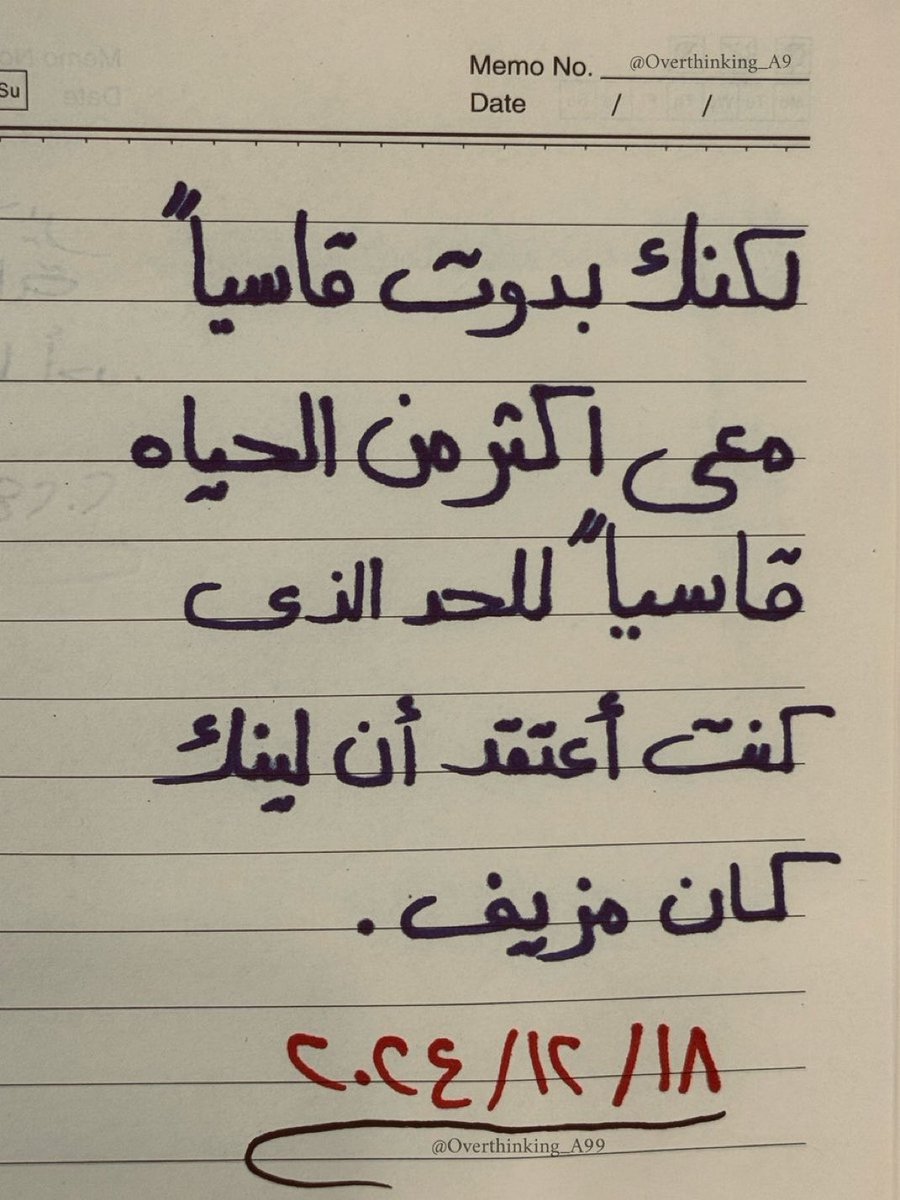 Su
Memo No. @Overthinking_A9
Date / /
لكنك بدوت قاسياً
معى اكثر من الحياه
قاسياً للحد الذى
كنت أعتقد أن لينك
كان مزيف .
١٨/ ١٢/ ٢٠٢٤
@Overthinking_A99